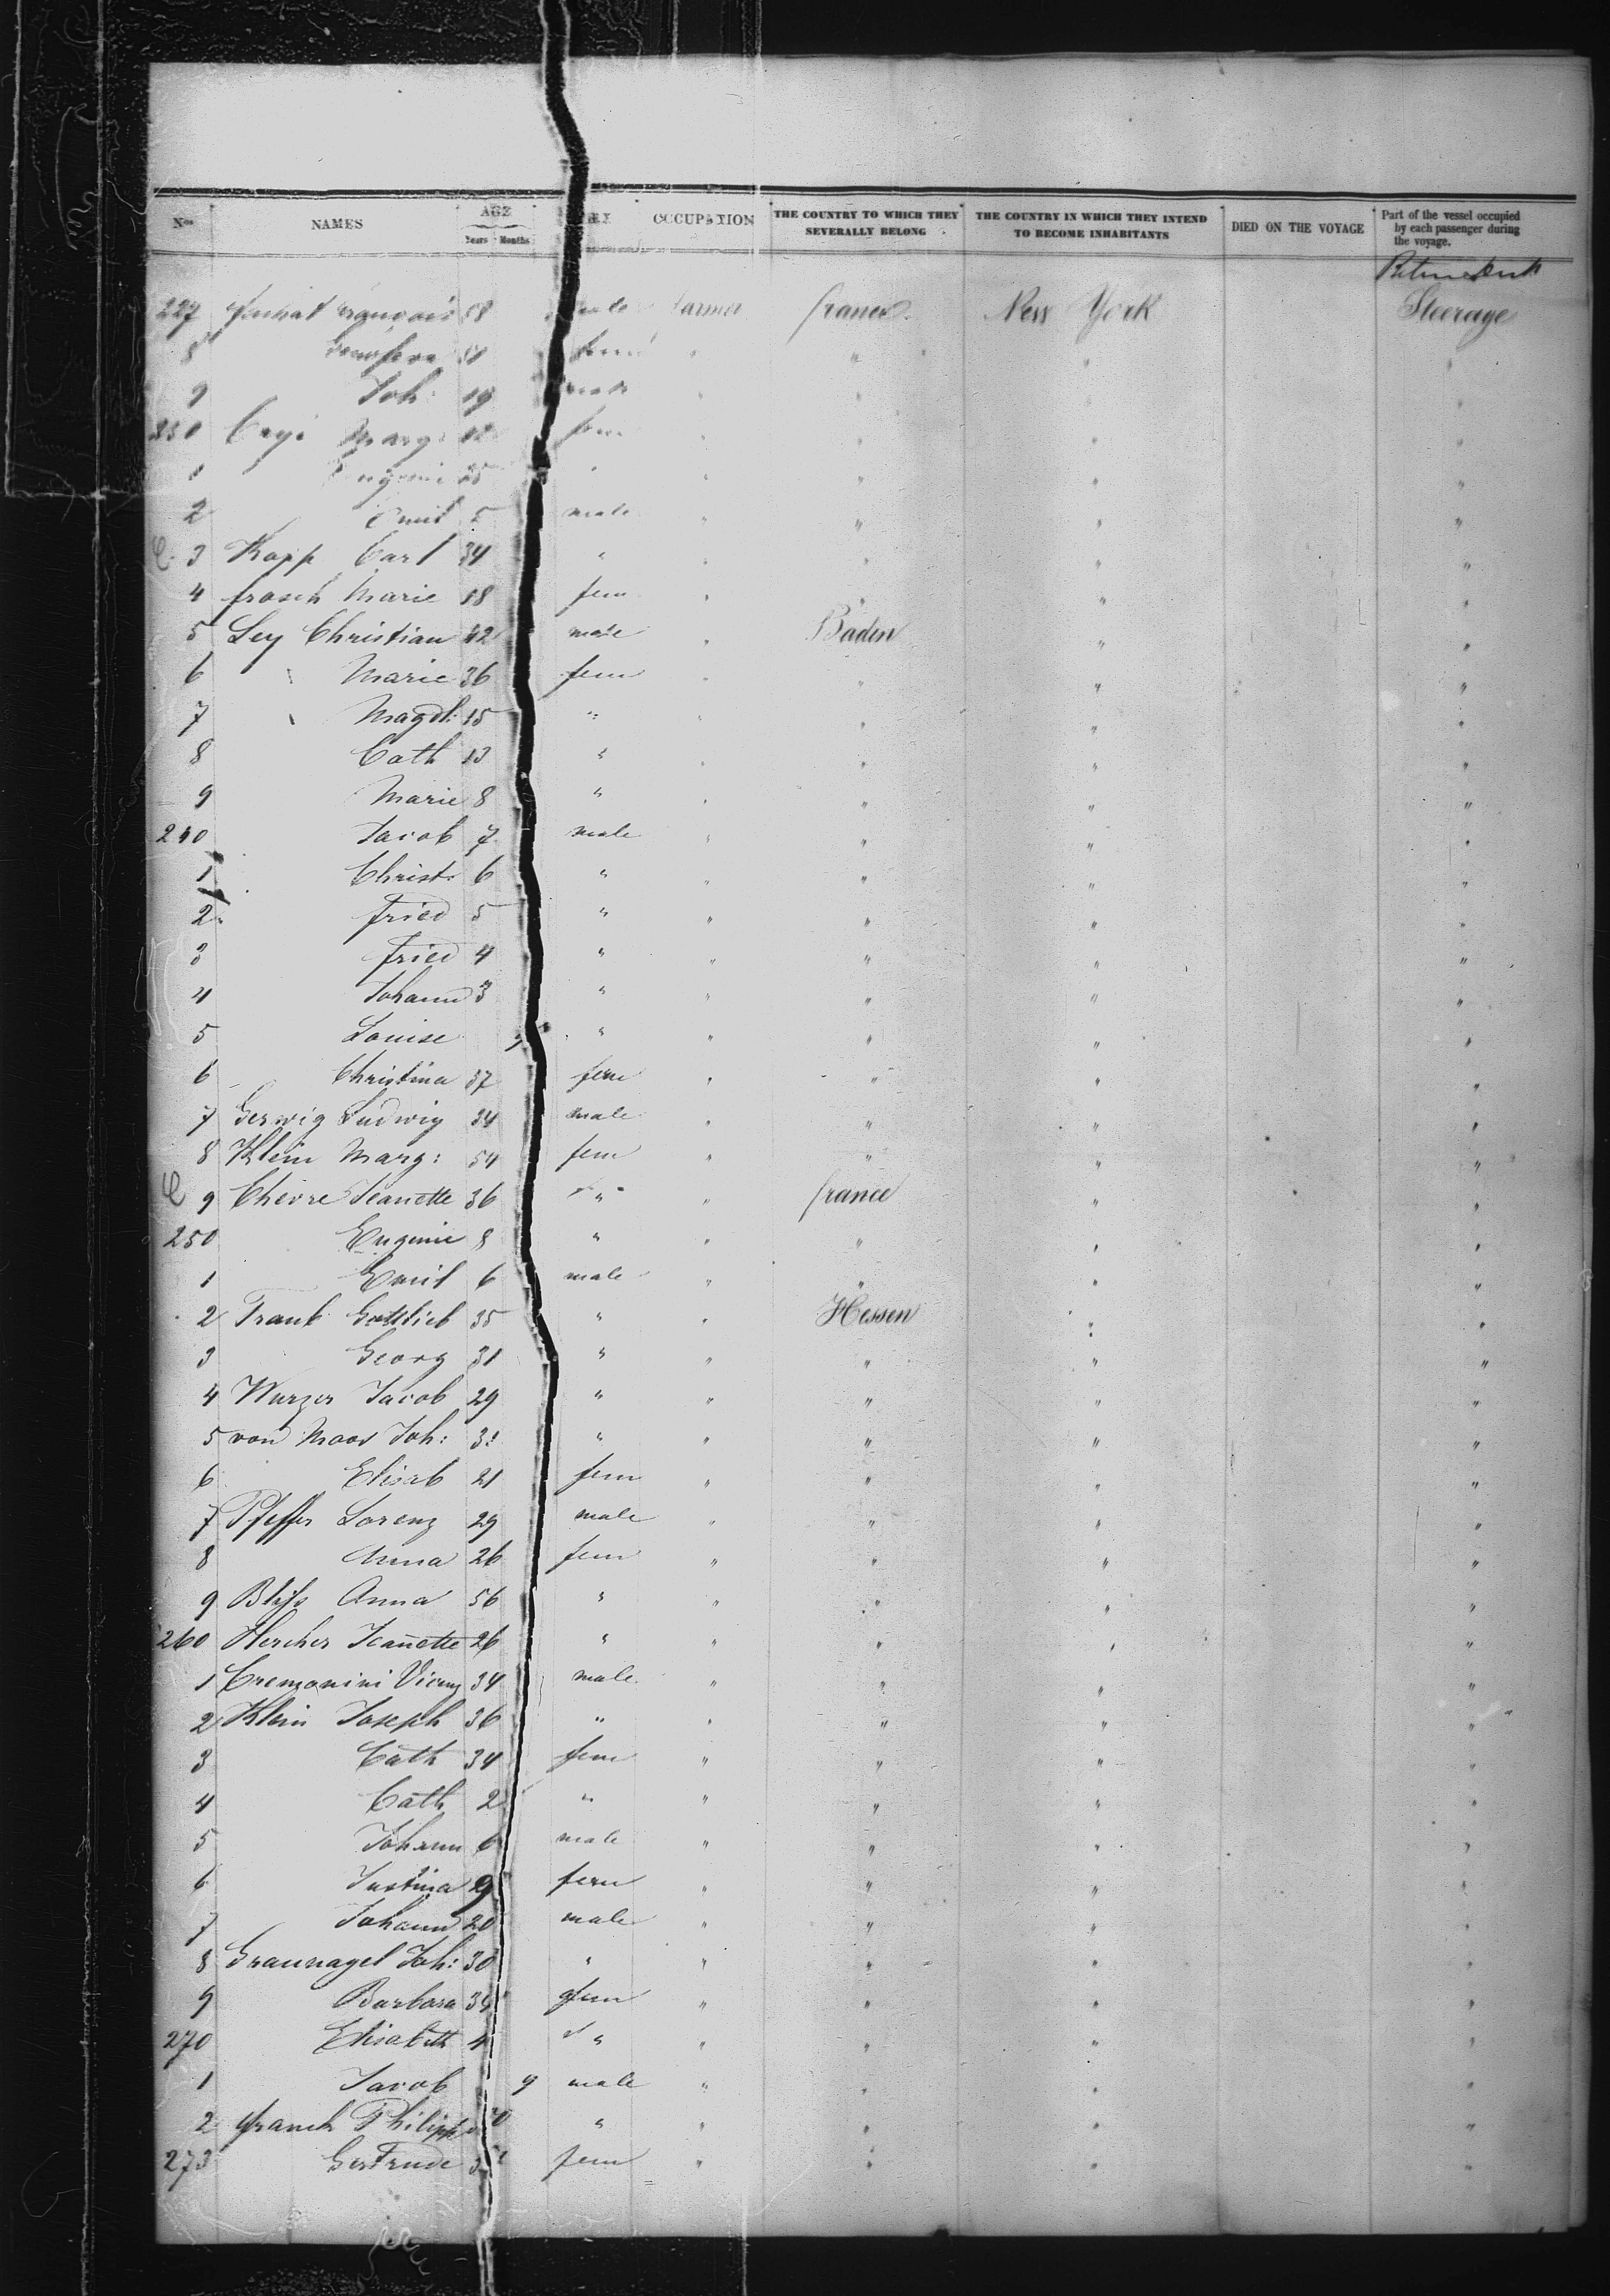 Nos NAMES AGE Years Months SEX OCCUPATION THE COUNTRY TO WHICH THEY SEVERALLY BELONG THE COUNTRY IN WHICH THEY INTEND TO BECOME INHABITANTS DIED ON THE VOYAGE Part of the vessel occupied by each passenger during the voyage.
227 58 male farmer france New York Steerage
8 fem " " " "
9 Joh 19 male " " " "
230 Marg: fem " " " "
1 " " " " "
2 Emil 5 male " " " "
C. 3 Kopp Carl 34 " " " " "
4 frosch Marie 18 fem " " " "
5 Ley Christian 42 male " Baden " "
6 " Marie 36 fem " " " "
7 " Magdl: 15 " " " " "
8 Cath 13 " " " " "
9 Marie 8 " " " " "
240 Jacob 7 male " " " "
1 Christ. 6 " " " " "
2 fried 5 " " " " "
3 fried 4 " " " " "
4 Johann 3 " " " " "
5 Louise 9 " " " " "
6 Christina 37 fem " " " "
7 Gerwig Ludwig 34 male " " " "
8 Klein Marg: 54 fem " " " "
C 9 Chevre Jeanette 36 " " france " "
250 Eugenie 8 " " " " "
1 Emil 6 male " " " "
2 Frank Gottlieb 35 " " Hessen " "
3 Georg 31 " " " " "
4 Wurzer Jacob 29 " " " " "
5 von Moos Joh: " " " " "
6 Elisab 21 fem " " " "
7 Pfeffer Lorenz 29 male " " " "
8 Anna 26 fem " " " "
9 Anna 56 " " " " "
260 Hercher Jeanette 26 " " " " "
1 Cremonini 34 male " " " "
2 Klein Joseph 36 " " " " "
3 Cath 34 fem " " " "
4 Cath 2 " " " " "
5 Johann 6 male " " " "
6 Justina 9 fem " " " "
7 Johann 20 male " " " "
8 Graunagel Joh: 30 " " " " "
9 Barbara fem " " " "
270 Elisabeth 4 " " " " "
1 Jacob 9 male " " " "
2 Philipp " " " " "
273 Gertrude fem " " " "